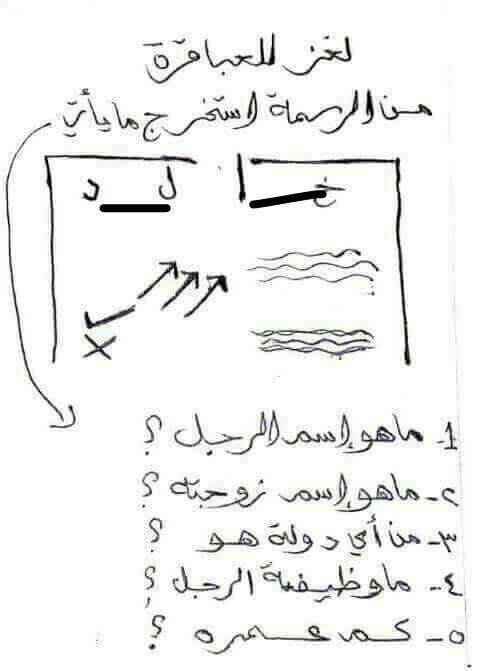 لغز للعباقرة
من الرسمة استخرج ما يأتي
خ ا ل د
1- ماهو إسم الرجل ؟
٢- ماهو إسم زوجته ؟
٣- من أي دولة هو ؟
٤- ما وظيفة الرجل ؟
٥- كم عمره ؟